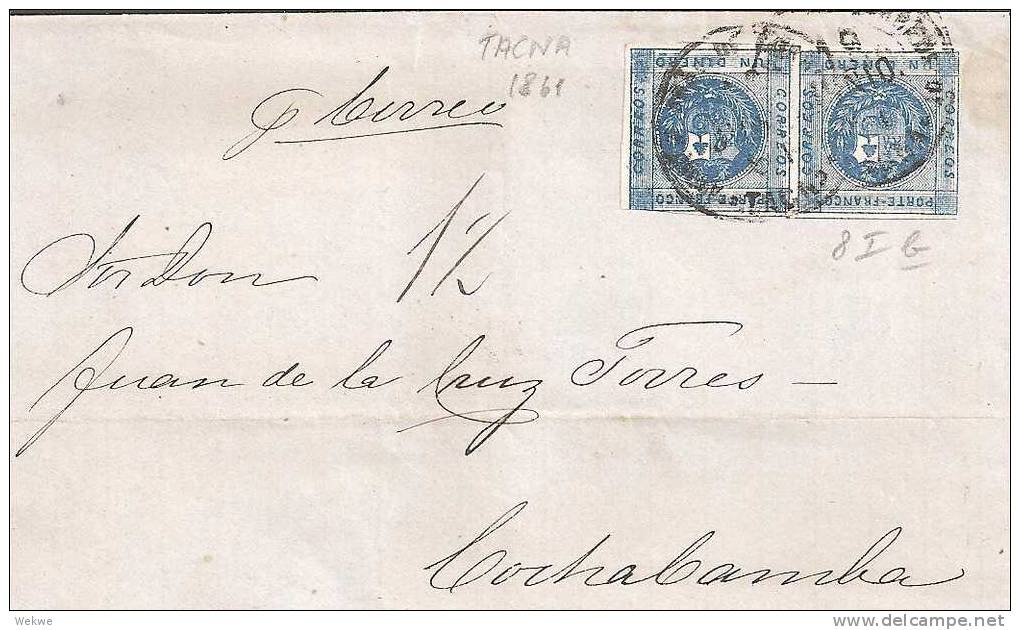 TACNA
1861
p Correo
UN DINERO UN DINERO
CORREOS CORREOS CORREOS CORREOS
PORTE-FRANCO PORTE-FRANCO
TACNA
8 I b
Sor Don 1½
Juan de la Cruz Torres —
Cochabamba
Wekwe
delcampe.net